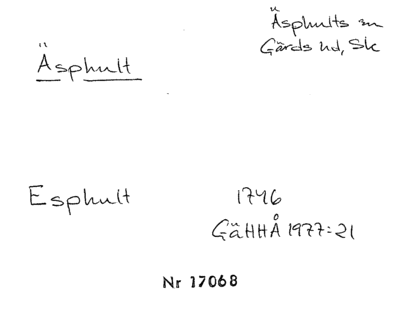 Äsphult
Äsphults sn
Gärds hd, Sk
Esphult
1746
GäHHÅ 1977:21
Nr 17068